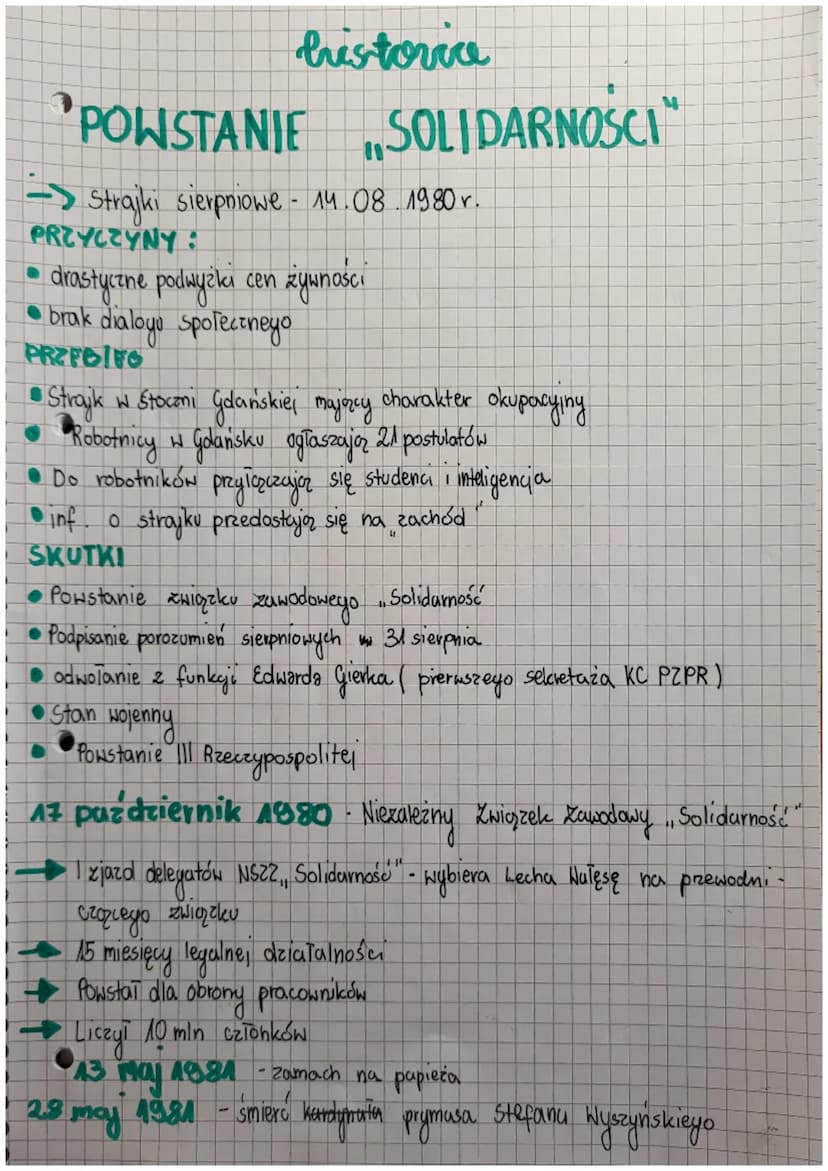 historia
POWSTANIE „SOLIDARNOŚCI"
-> Strajki sierpniowe - 14.08.1980r.
PRZYCZYNY:
• drastyczne podwyżki cen żywności
• brak dialogu społecznego
PRZEBIEG
• Strajk w Stoczni Gdańskiej mający charakter okupacyjny
• Robotnicy w Gdańsku ogłaszają 21 postulatów
• Do robotników przyłączają się studenci i inteligencja
• inf. o strajku przedostają się na „zachód"
SKUTKI
• Powstanie związku zawodowego „Solidarność"
• Podpisanie porozumień sierpniowych 31 sierpnia
• odwołanie z funkcji Edwarda Gierka (pierwszego sekretaża KC PZPR)
• Stan wojenny
• Powstanie III Rzeczypospolitej
17 październik 1980 - Niezależny Związek Zawodowy „Solidarność"
→ I zjazd delegatów NSZZ „Solidarność" - wybiera Lecha Wałęsę na przewodni-
czącego związku
→ 15 miesięcy legalnej działalności
→ Powstał dla obrony pracowników
→ Liczył 10 mln członków
13 maj 1981 - zamach na papieża
28 maj 1981 - śmierć kardynała prymasa Stefana Wyszyńskiego